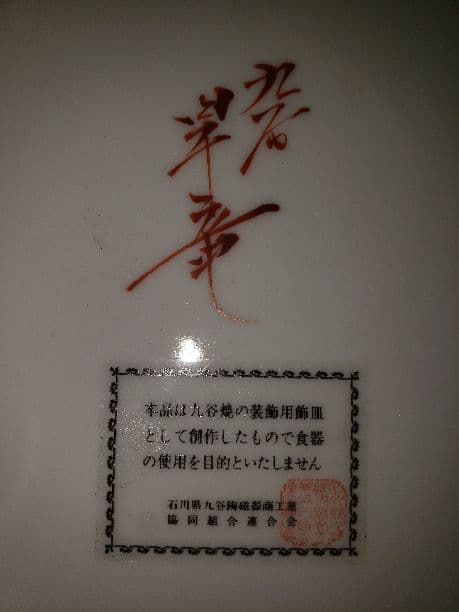 九谷
本品は九谷焼の装飾用飾皿
として創作したもので食器
の使用を目的といたしません
石川県九谷陶磁器商工業
協同組合連合会